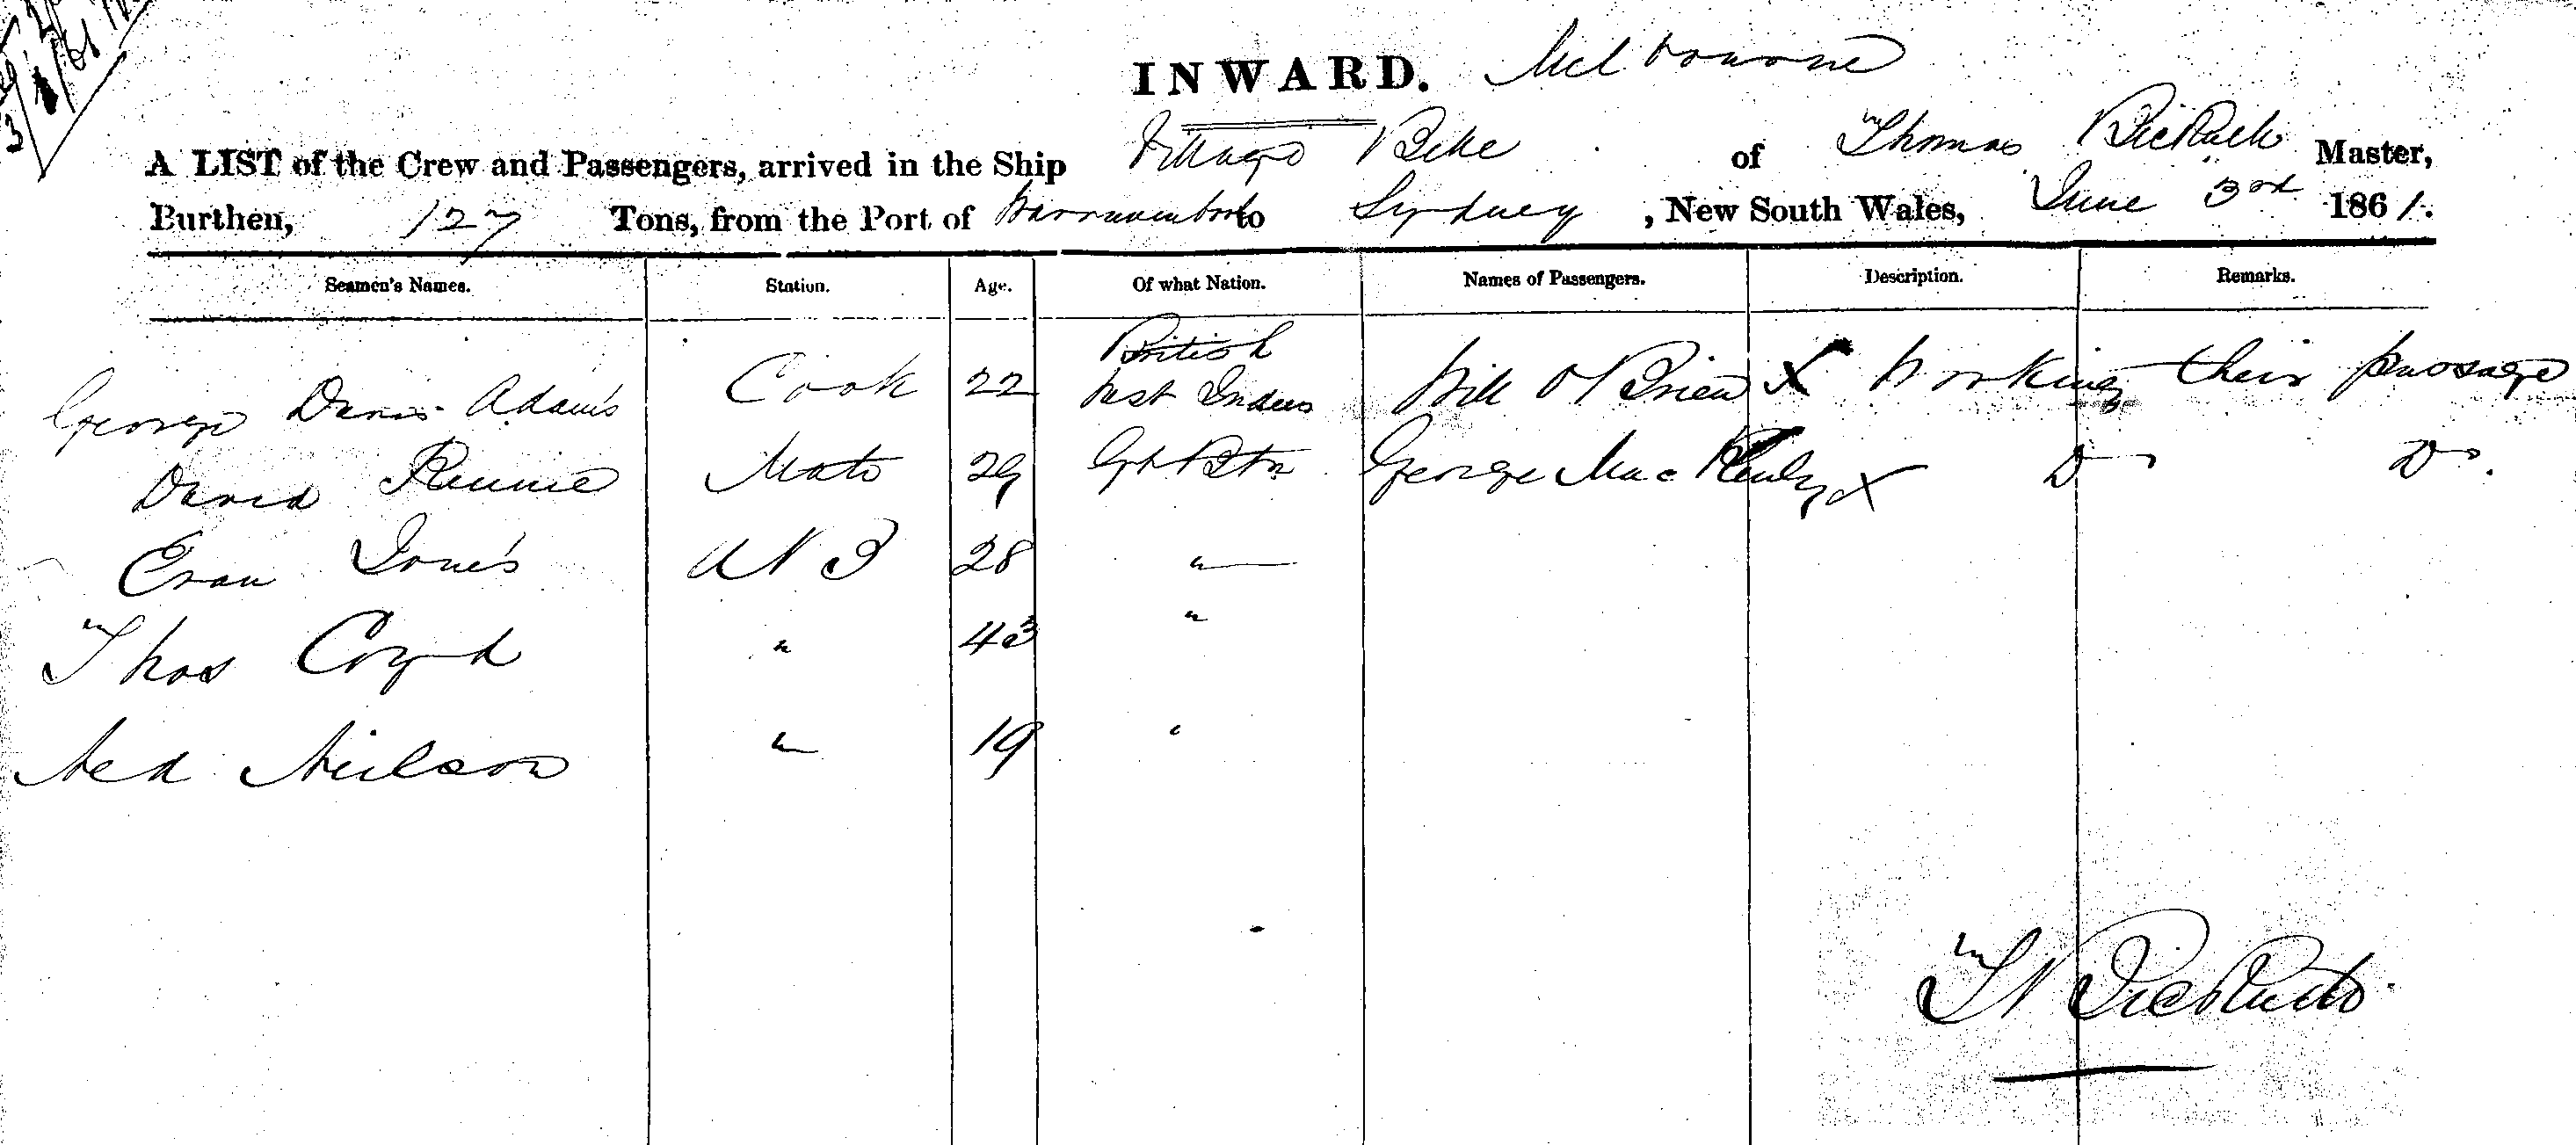 INWARD. Melbourne
A LIST of the Crew and Passengers, arrived in the Ship Village Belle of Thomas Master,
Burthen, 127 Tons, from the Port of to Sydney, New South Wales, June 3rd 1861.
Seamen's Names. Station. Age. Of what Nation. Names of Passengers. Description. Remarks.
George Davis Adams Cook 22 British West Indies Will O'Brien X Working their passage
David Rennie Mate 29 Gt Btn George Mac X Do Do.
Evan Jones A B 28 "
Thos " 43 "
Ned Neilson " 19 "